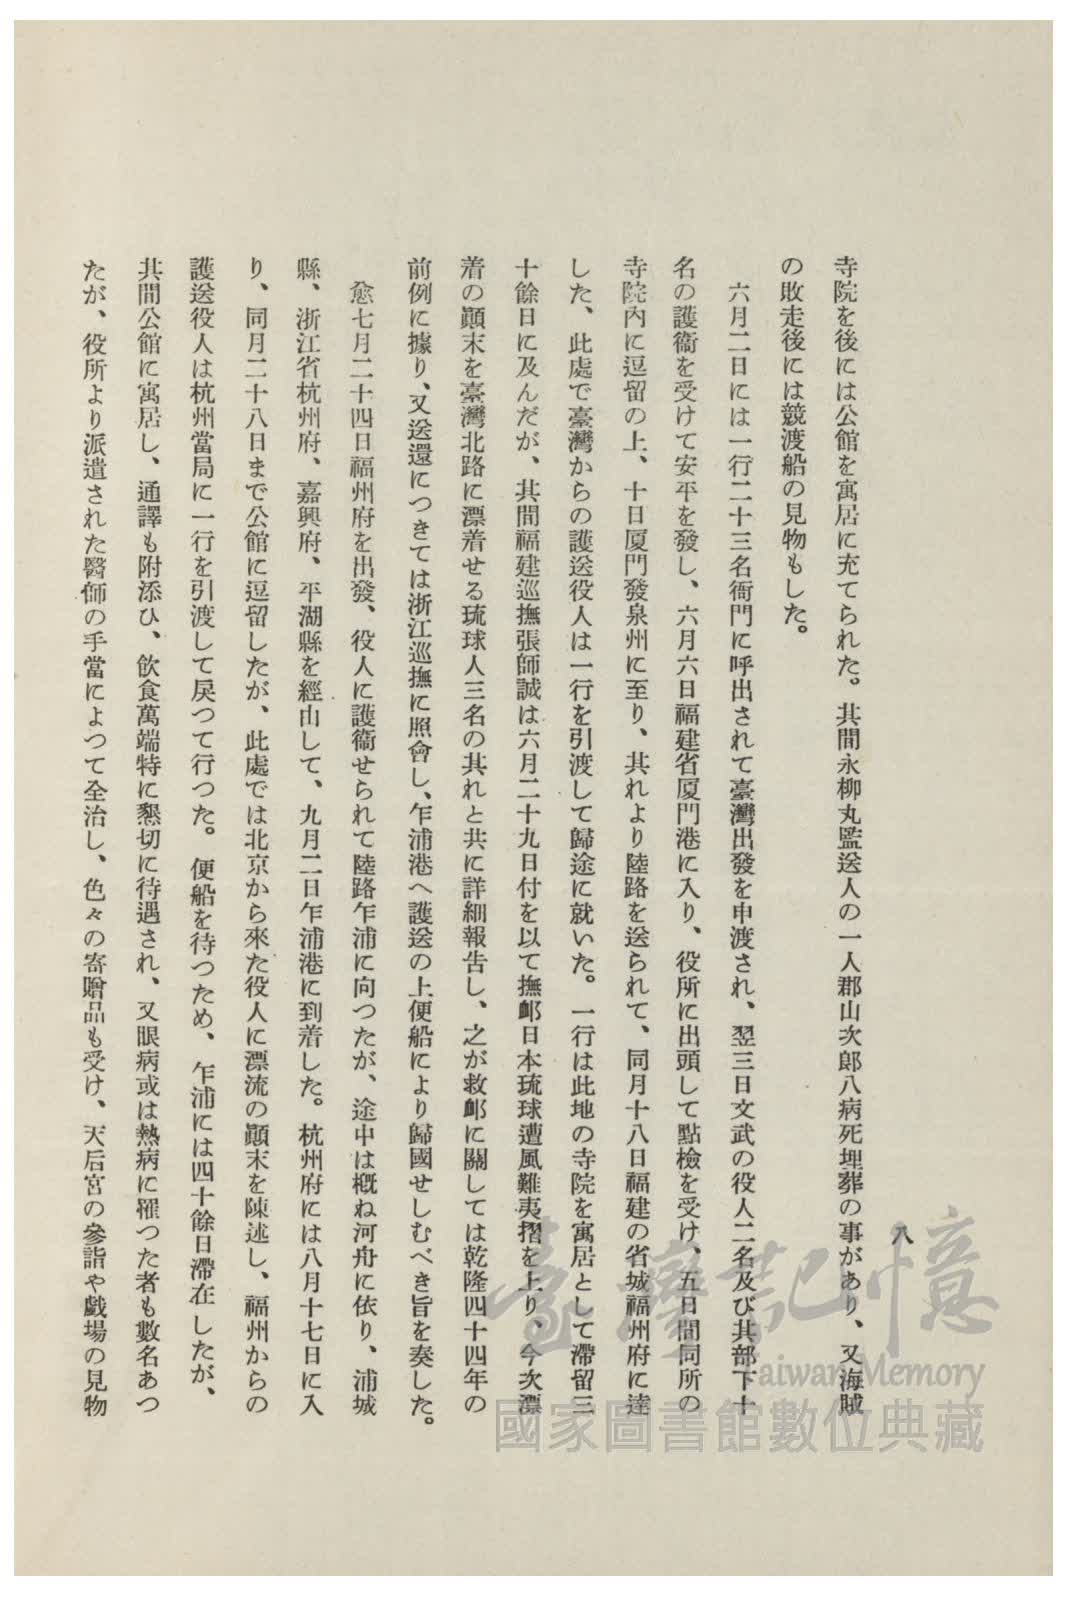 八
寺院を後には公館を寓居に充てられた。其間永柳丸監送人の一人郡山次郎八病死埋葬の事があり、又海賊
の敗走後には競渡船の見物もした。
六月二日には一行二十三名衙門に呼出されて臺灣出發を申渡され、翌三日文武の役人二名及び其部下十
名の護衞を受けて安平を發し、六月六日福建省厦門港に入り、役所に出頭して點檢を受け、五日間同所の
寺院內に逗留の上、十日厦門發泉州に至り、其れより陸路を送られて、同月十八日福建の省城福州府に達
した、此處で臺灣からの護送役人は一行を引渡して歸途に就いた。一行は此地の寺院を寓居として滯留三
十餘日に及んだが、其間福建巡撫張師誠は六月二十九日付を以て撫卹日本琉球遭風難夷摺を上り、今次漂
着の顚末を臺灣北路に漂着せる琉球人三名の其れと共に詳細報告し、之が救卹に關しては乾隆四十四年の
前例に據り、又送還につきては浙江巡撫に照會し、乍浦港へ護送の上便船により歸國せしむべき旨を奏した。
愈七月二十四日福州府を出發、役人に護衞せられて陸路乍浦に向つたが、途中は槪ね河舟に依り、浦城
縣、浙江省杭州府、嘉興府、平湖縣を經由して、九月二日乍浦港に到着した。杭州府には八月十七日に入
り、同月二十八日まで公館に逗留したが、此處では北京から來た役人に漂流の顚末を陳述し、福州からの
護送役人は杭州當局に一行を引渡して戾つて行つた。便船を待つため、乍浦には四十餘日滯在したが、
其間公館に寓居し、通譯も附添ひ、飮食萬端特に懇切に待遇され、又眼病或は熱病に罹つた者も數名あつ
たが、役所より派遣された醫師の手當によつて全治し、色々の寄贈品も受け、天后宮の參詣や戱場の見物
臺灣記憶
Taiwan Memory
國家圖書館數位典藏